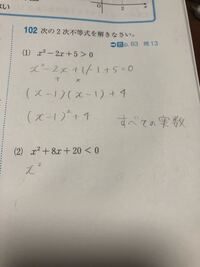 102 次の2次不等式を解きなさい。
p.63 例13
(1) x²−2x+5>0
x²−2x+1−1+5=0
(x−1)(x−1)+4
(x−1)²+4
すべての実数
(2) x²+8x+20<0
x²